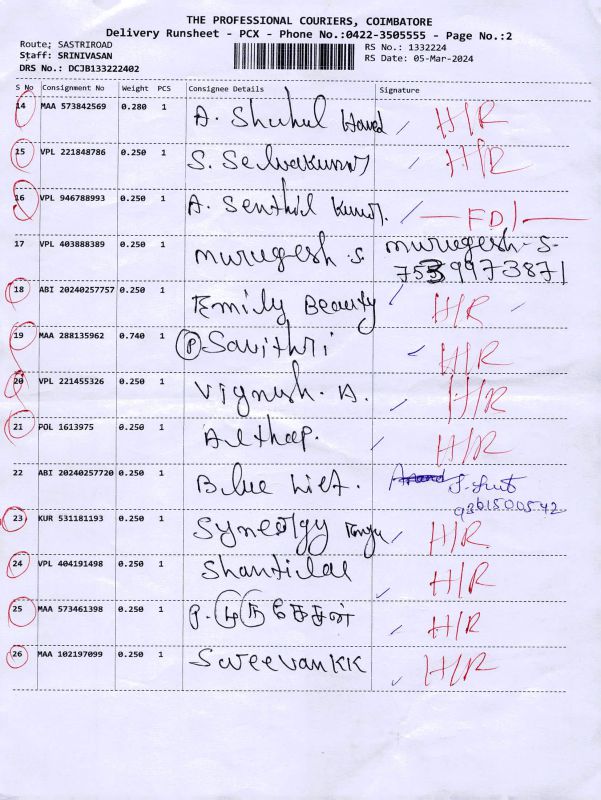 THE PROFESSIONAL COURIERS, COIMBATORE
Delivery Runsheet - PCX - Phone No.:0422-3505555 - Page No.:2
Route; SASTRIROAD RS No.: 1332224
Staff: SRINIVASAN RS Date: 05-Mar-2024
DRS No.: DCJB133222402
S No Consignment No Weight PCS Consignee Details Signature
14 MAA 573842569 0.280 1 A. Shuhul Hamed H/R
15 VPL 221848786 0.250 1 S. Selvakumar H/R
16 VPL 946788993 0.250 1 A. Senthil Kumar. FD/
17 VPL 403888389 0.250 1 murugesh. S. murugesh. S.
7539973871
18 ABI 20240257757 0.250 1 Emily Beauty H/R
19 MAA 288135962 0.740 1 (P) Savithri H/R
20 VPL 221455326 0.250 1 Vignesh. A. H/R
21 POL 1613975 0.250 1 Althap. H/R
22 ABI 20240257720 0.250 1 Blue
9361500542
23 KUR 531181193 0.250 1 Synergy H/R.
24 VPL 404191498 0.250 1 Shantilal H/R
25 MAA 573461398 0.250 1 P. முருகேசன் H/R
26 MAA 102197099 0.250 1 H/R